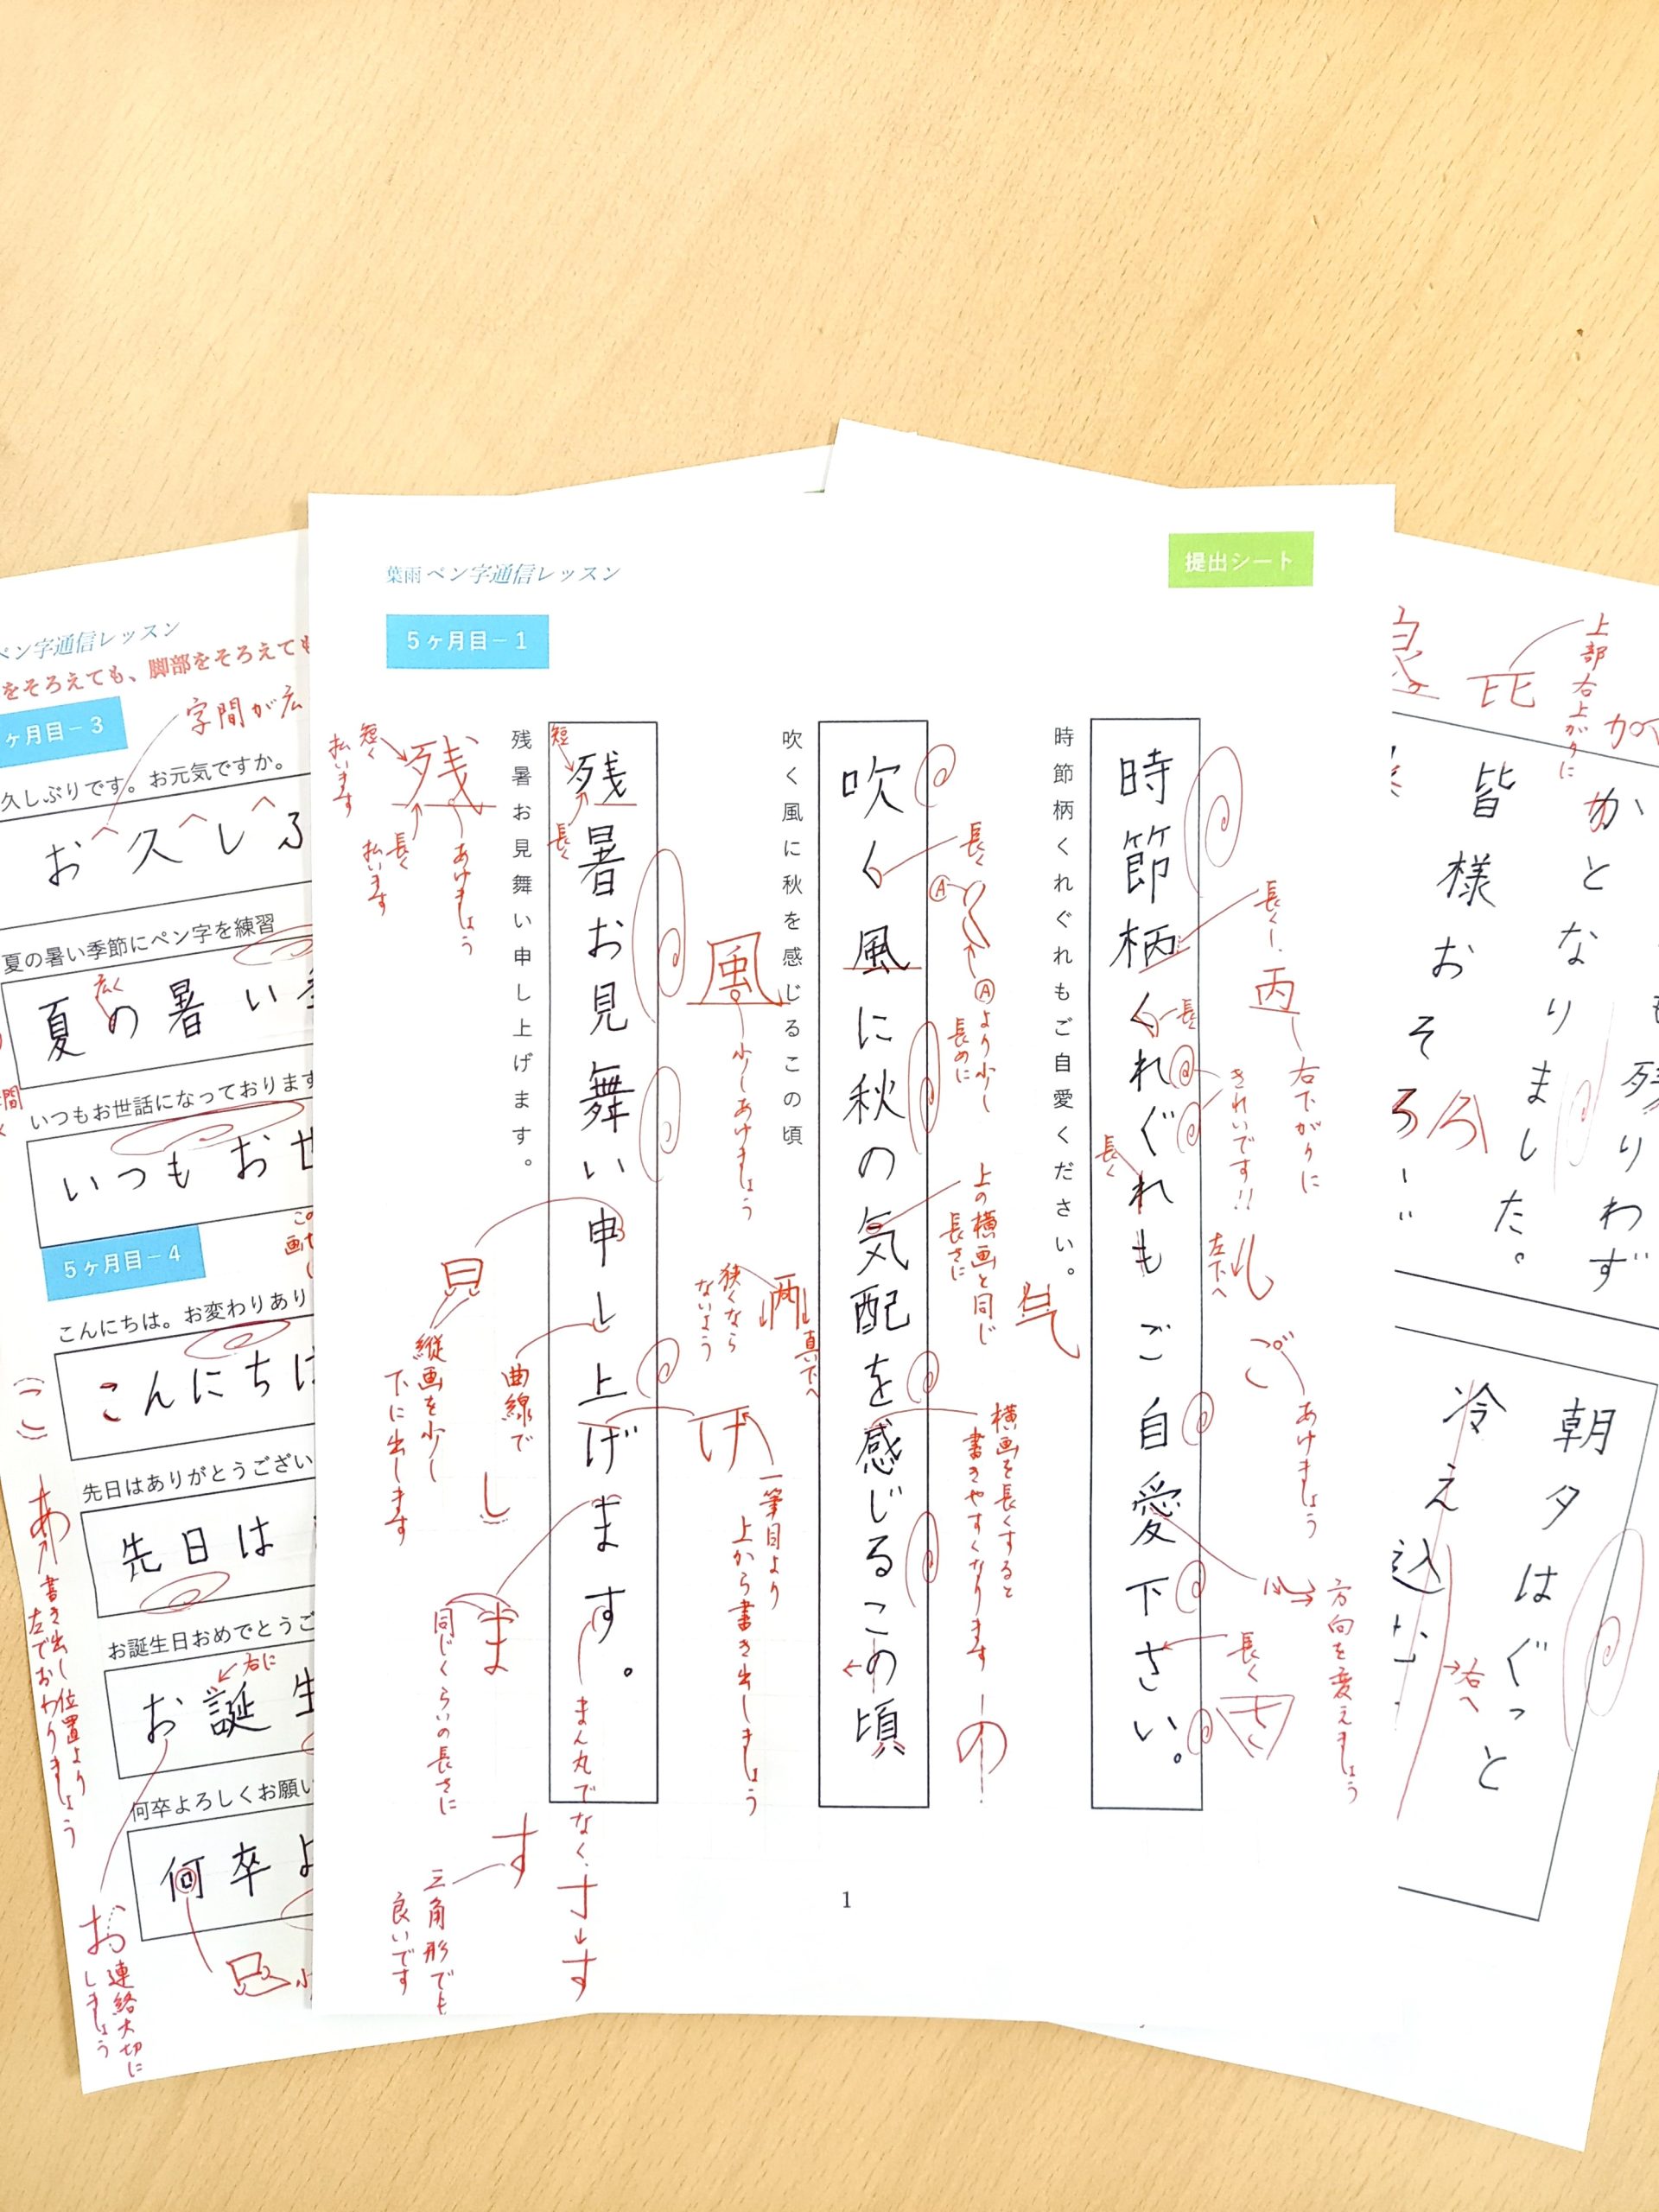 葉雨 ペン字通信レッスン
提出シート
5ヶ月目－1
時節柄くれぐれもご自愛ください。
時節柄くれぐれもご自愛下さい。
長く
丙
右下がりに
長く
きれいです!!
長く
左下へ
ご
あけましょう
方向を変えましょう
長く
さ
吹く風に秋を感じるこの頃
吹く風に秋の気配を感じるこの頃
長く
Ⓐ
く
Ⓐより少し
長めに
上の横画と同じ
長さに
気
横画を長くすると
書きやすくなります
の
風
少しあけましょう
狭くなら
ないよう
真下へ
げ
一筆目より
上から書き出しましょう
残暑お見舞い申し上げます。
残暑お見舞い申し上げます。
短
長く
残
短く
払います
長く
払います
あけましょう
縦画を少し
下に出します
曲線で
し
ま
同じくらいの長さに
まん丸でなく、
す
す
三角形でも
良いです
1
ペン字通信レッスン
をそろえても、脚部をそろえても
ヶ月目－3
字間が広
久しぶりです。お元気ですか。
お久しぶ
夏の暑い季節にペン字を練習
広く
夏の暑い季
間
いつもお世話になっております
いつもお世
5ヶ月目－4
こんにちは。お変わりあり
こんにちは
先日はありがとうござい
先日は
お誕生日おめでとうご
右に
お誕生
何卒よろしくお願い
何卒よ
あ
書き出し位置より
左でおわりましょう
お
連絡大切に
しましょう
上部右上がりに
比
残りわず
かとなりました。
皆様おそろ
ろ
朝夕はぐっと
冷え込
右へ